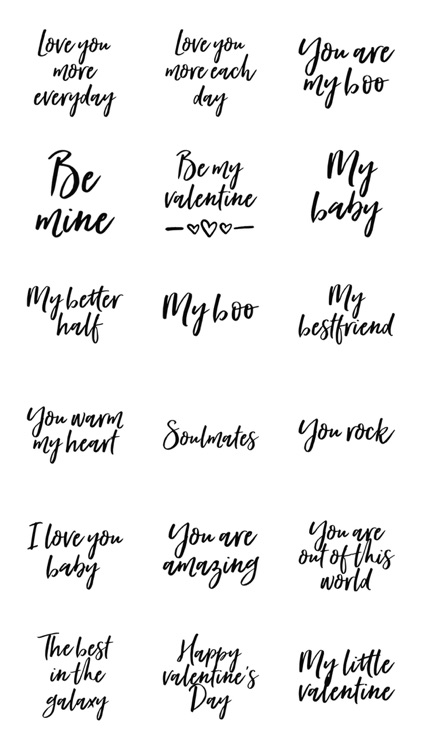 Love you
more
everyday
Love you
more each
day
You are
my boo
Be
mine
Be my
valentine
My
baby
My better
half
My boo
My
bestfriend
You warm
my heart
Soulmates
You rock
I love you
baby
You are
amazing
You are
out of this
world
The best
in the
galaxy
Happy
valentine's
Day
My little
valentine